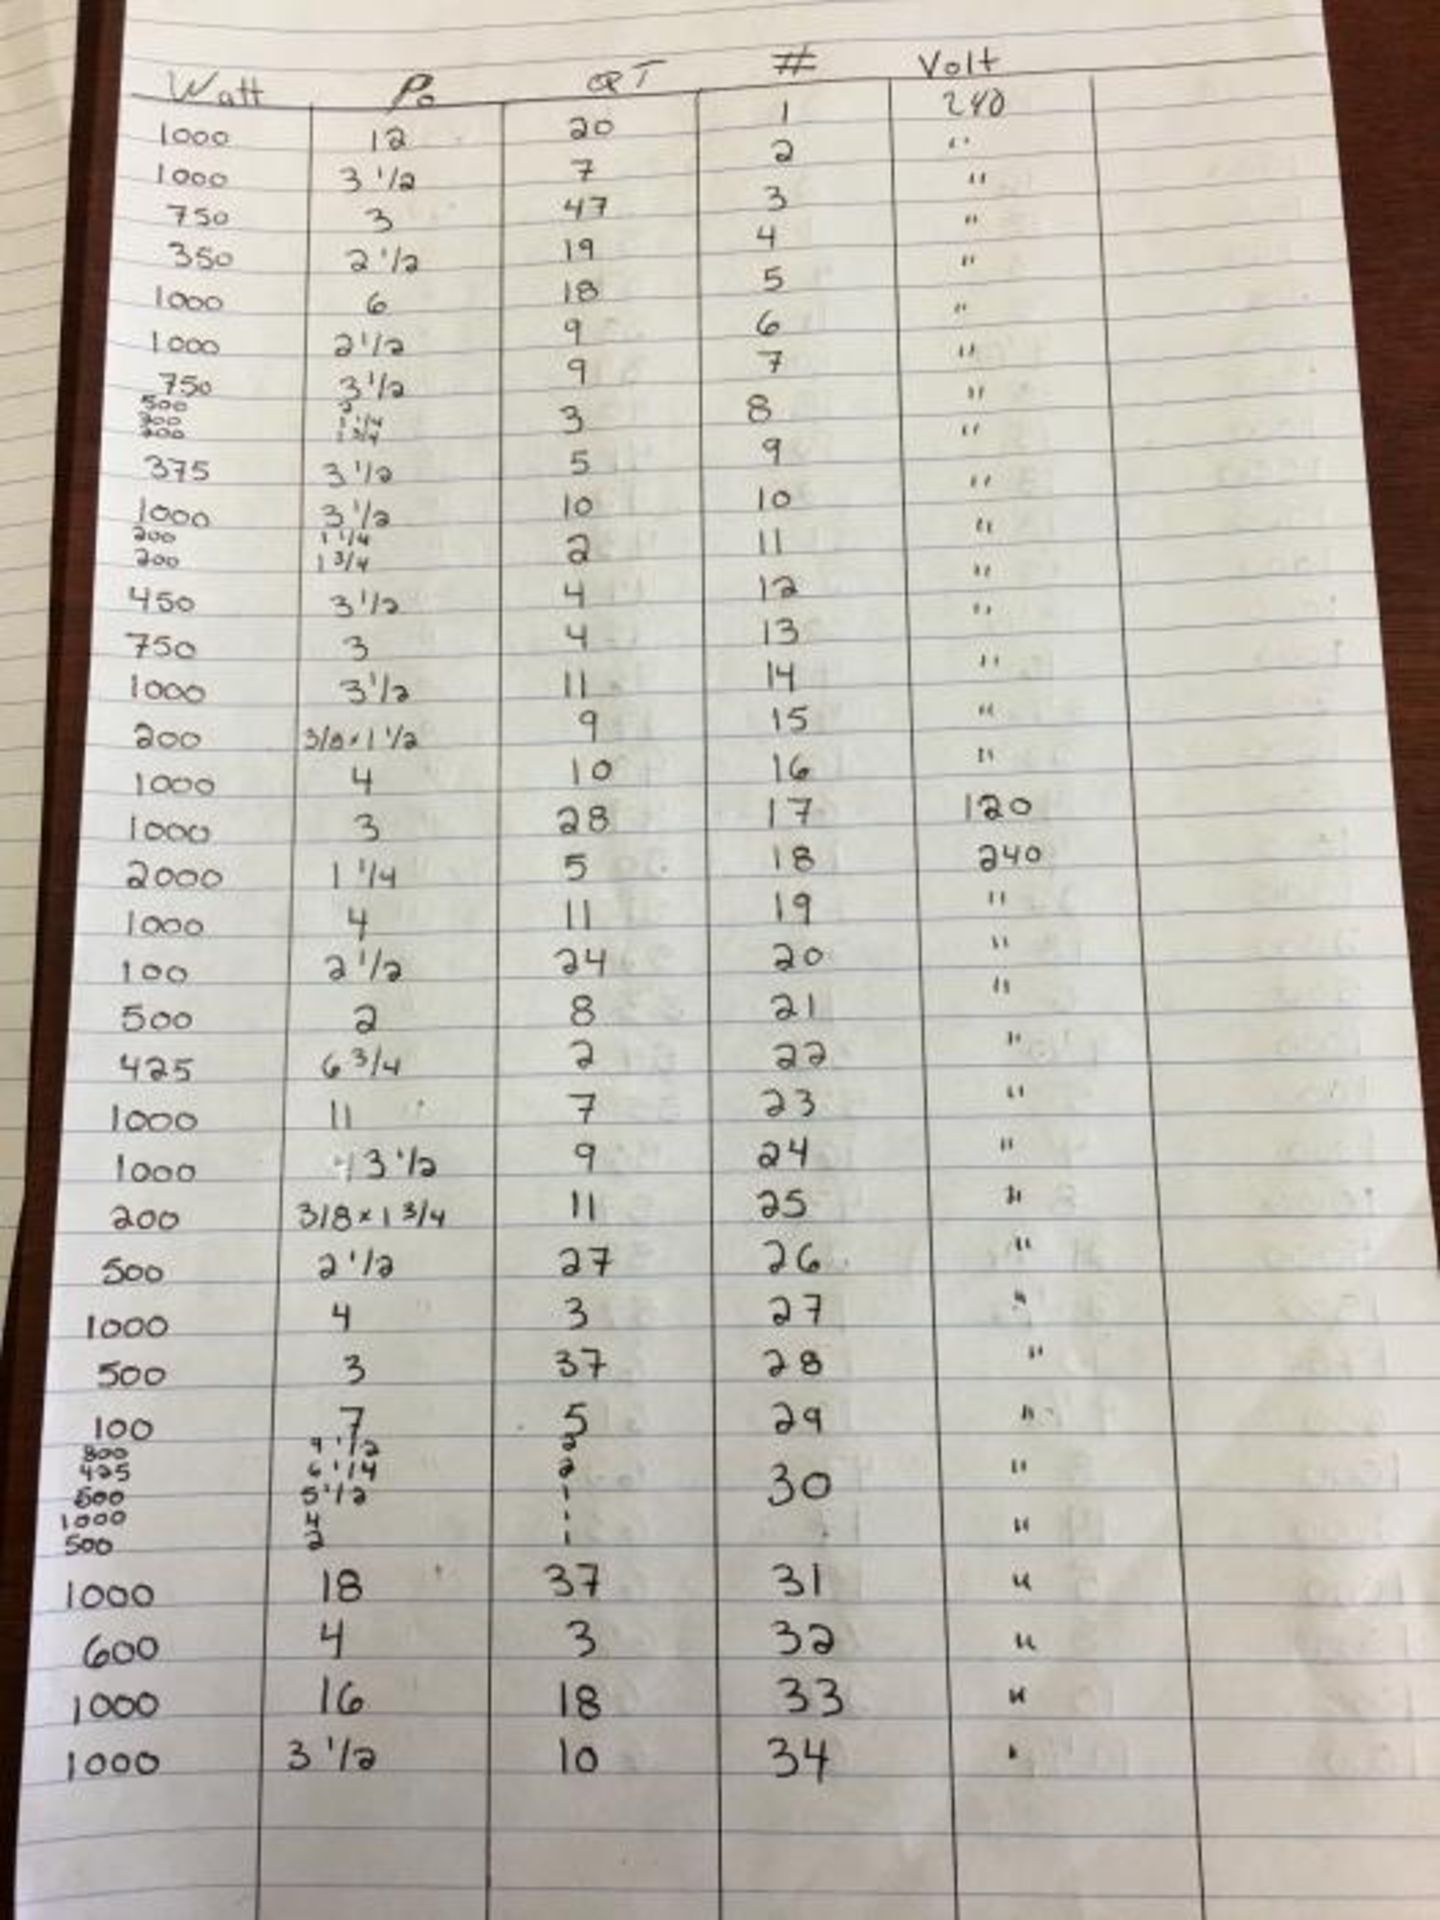 Watt Po QT # Volt
1000 12 20 1 240
1000 3 1/2 7 2 "
750 3 47 3 "
350 2 1/2 19 4 "
1000 6 18 5 "
1000 2 1/2 9 6 "
750 3 1/2 9 7 "
500 2 3 8 "
200 1 1/4
200 1 3/4
375 3 1/2 5 9 "
1000 3 1/2 10 10 "
200 1 1/4 2 11 "
200 1 3/4
450 3 1/2 4 12 "
750 3 4 13 "
1000 3 1/2 11 14 "
200 3/8 x 1 1/2 9 15 "
1000 4 10 16 "
1000 3 28 17 120
2000 1 1/4 5 18 240
1000 4 11 19 "
100 2 1/2 24 20 "
500 2 8 21 "
425 6 3/4 2 22 "
1000 11 7 23 "
1000 3 1/2 9 24 "
200 3/8 x 1 3/4 11 25 "
500 2 1/2 27 26 "
1000 4 3 27 "
500 3 37 28 "
100 7 5 29 "
800 9 1/2 2
425 6 1/4 2 30 "
500 5 1/2 1
1000 4 1 "
500 2 1
1000 18 37 31 "
600 4 3 32 "
1000 16 18 33 "
1000 3 1/2 10 34 "